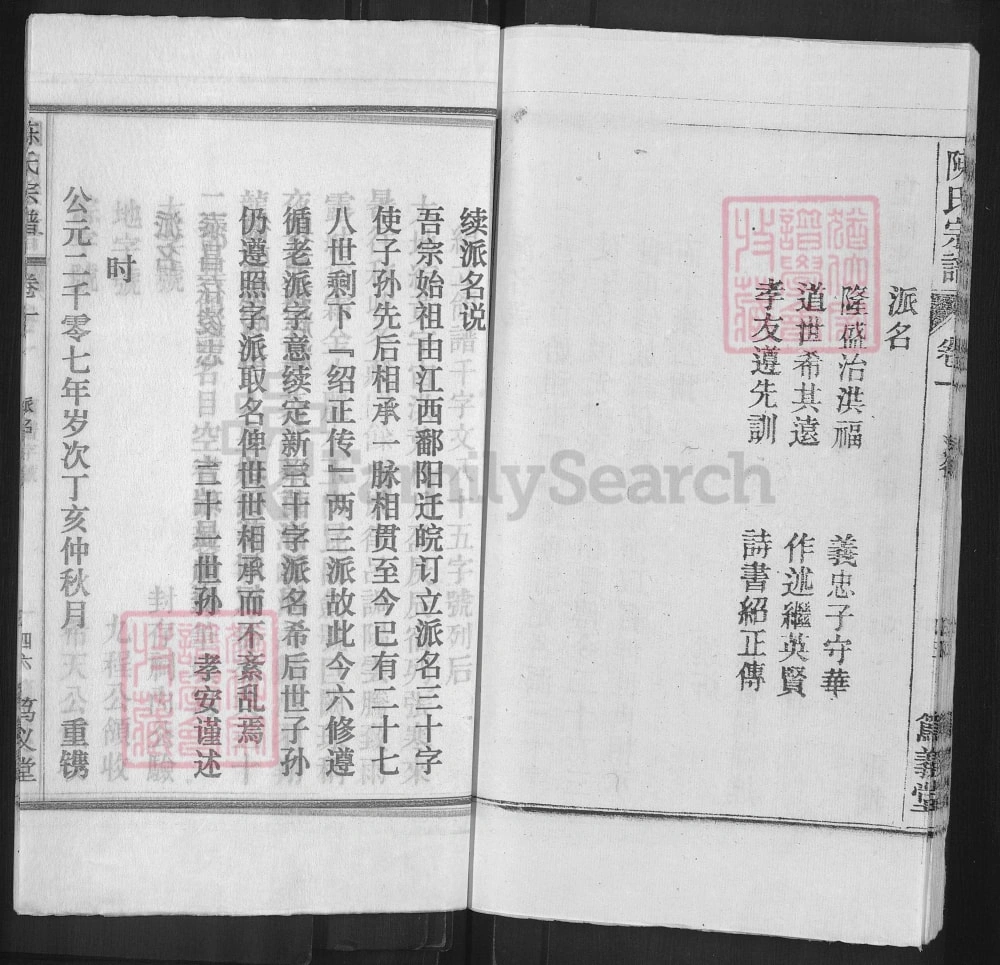 陳氏宗譜 卷一 派名 篤義堂
派名
隆盛治洪福 義忠子守華
道世希其遠 作述繼英賢
孝友遵先訓 詩書紹正傳
续派名说
吾宗始祖由江西鄱阳迁皖订立派名三十字
使子孙先后相承一脉相贯至今已有二十七
八世剩下『绍正传』两三派故此今六修遵
循老派字意续定新三十字派名希后世子孙
仍遵照字派取名俾世世相承而不紊乱焉
三十一世孙 孝安谨述
时
公元二千零七年岁次丁亥仲秋月 重镌
陈氏宗谱 卷一 派名 四六 笃义堂
FamilySearch